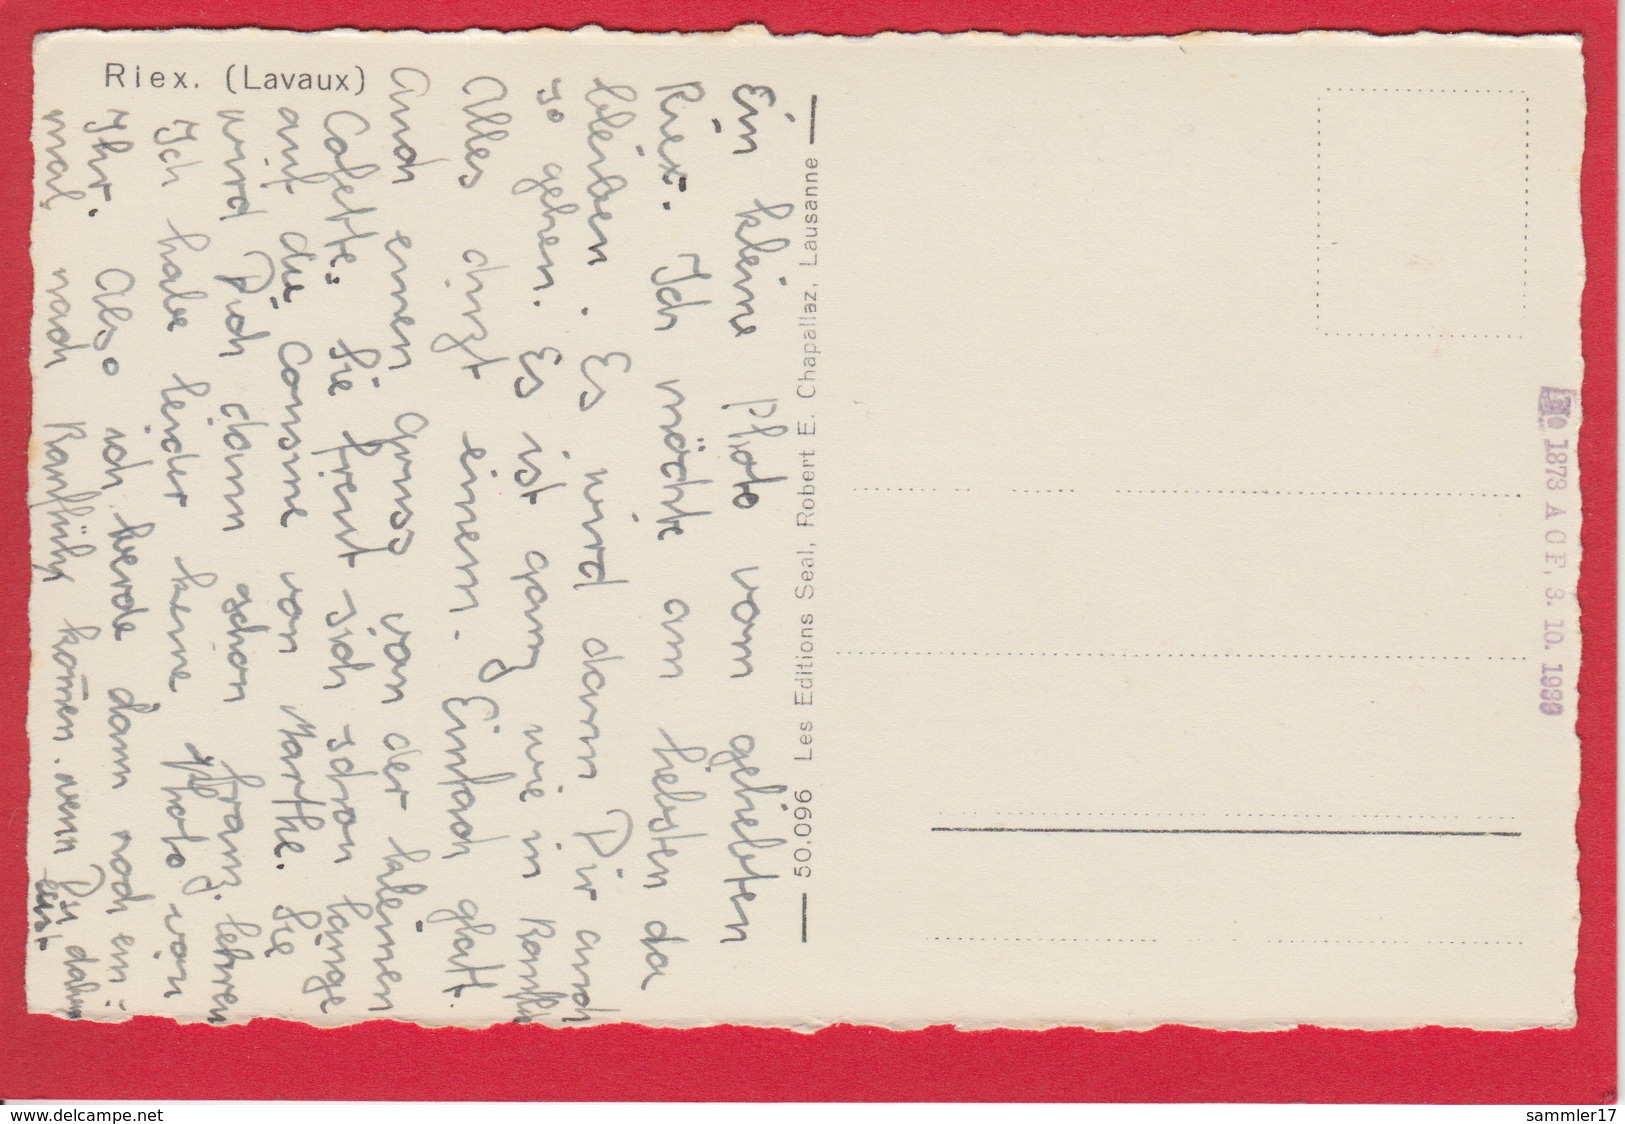 Riex. (Lavaux)
Ein kleine Photo vom geliebten
Riex. Ich möchte am liebsten da
bleiben. Es wird dann Dir auch
so gehen. Es ist ganz wie in
Alles duzt einem. Einfach glatt.
Auch einen gruss von der kleinen
Colette. Sie freut sich schon lange
auf die Cousine von Marthe. Sie
wird Dich dann schon franz. lehren
Ich habe leider keine photo von
Ihr. Also ich werde dann noch ein-
mal nach kommen. wenn Du daheim
bist
50.096 Les Editions Seal, Robert E. Chapallaz, Lausanne
1873 A C F, 3. 10. 1939
www.delcampe.net
sammler17